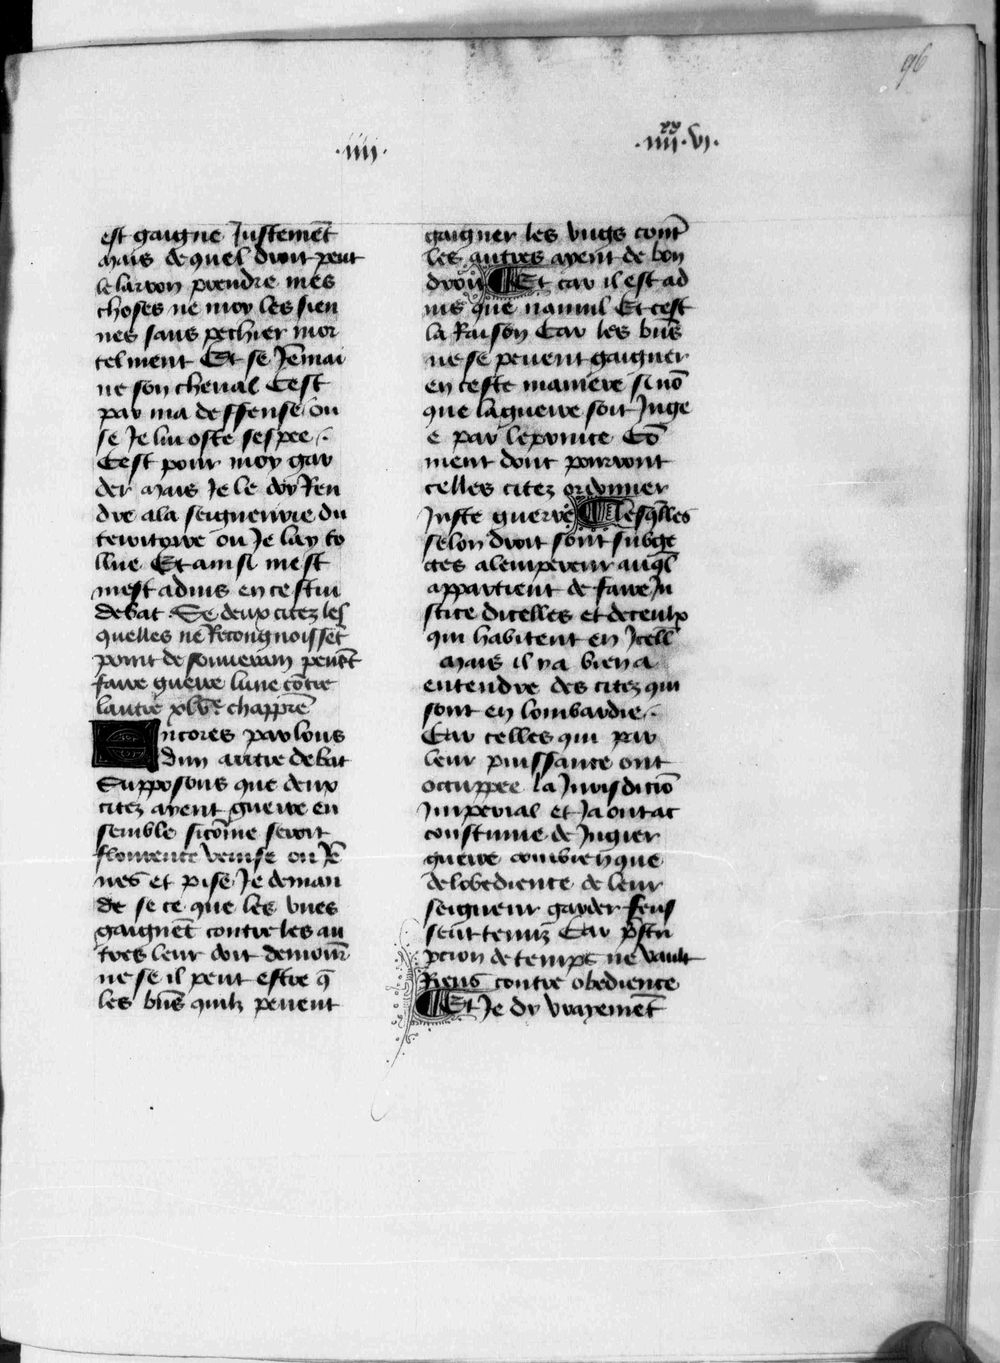 96
.iiii.
.iiii.xx vi.
est gaigne Justemēt
mais de quel droit peut
le larron prendre mes
choses ne moy les sien
nes sans pechier mor
telment Et se Jēmai
ne son cheual Cest
par ma deffense ou
se Je lui oste sespee.
Cest pour moy gar
der mais Je le doy Ren
dre ala seigneurie du
territoyre ou Je lay to
llue Et ainsi mest
mest aduis en cestui
debat. Se deux citez les
quelles ne Recongnoissēt
point de souuerain peuēt
faire guerre lune cōtre
lautre xlvᵉ. chappr̄e
Encores parlons
dun autre debat
Supposons que deux
citez ayent guerre en
semble sicōme seroit
flourence venise ou Jē
nes et pise Je deman
de se ce que les vnes
gaignēt contre les au
tres leur doit demour̄
ne se il peut estre q̄
les biēs quilz peuent
gaigner les vngs contr̄
les autres ayent de bon
droit Et car il est ad
uis que nannil Et cest
la Raison Car les biēs
ne se peuent gaigner
en ceste maniere si nō
que laguerre soit Juge
e par leprince Cō
ment dont pourront
celles citez ordonner
Juste guerre lesq̄lles
selon droit sont subge
ctes alempereur auq̄l
appartient de faire Ju
stice dicelles et de ceulx
qui habitent en Jcell̄
mais il ya bien a
entendre des citez qui
sont en lombardie.
Car celles qui par
leur puissance ont
occuppee la Jurisdiciō
Imperial et Ja ont ac
coustume de Jugier
guerre combien que
delobedience de leur
seigneur garder feus
seūt tenuz Car p̄scri
pcion de temps ne vault
Riens contre obedience
Et Je dy vrayemēt